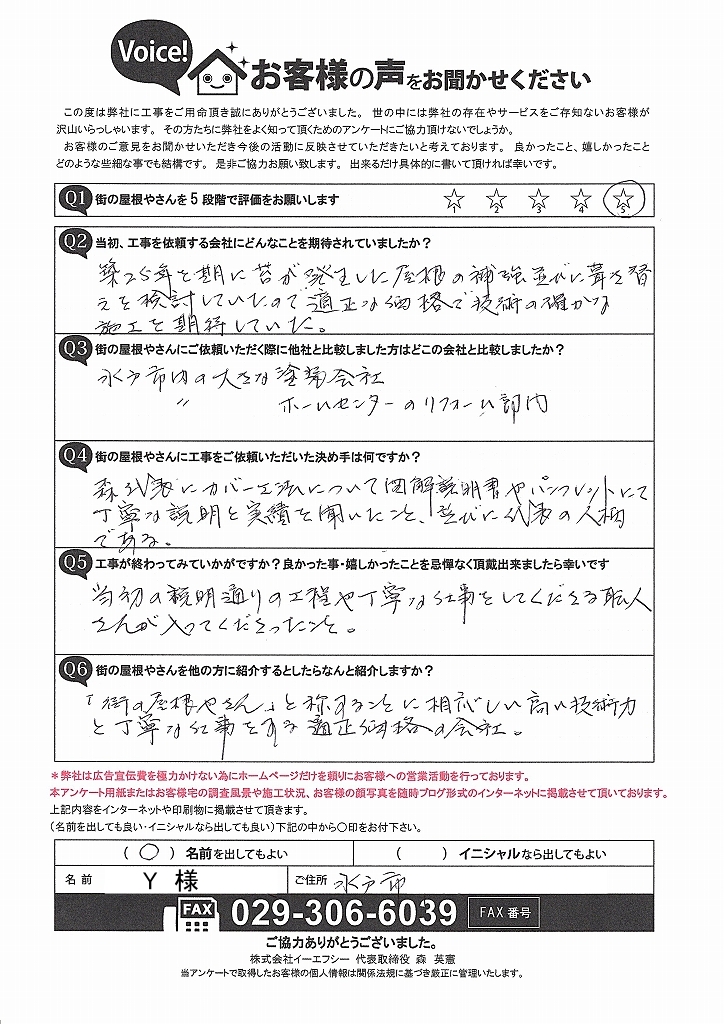 Voice!
お客様の声をお聞かせください
この度は弊社に工事をご用命頂き誠にありがとうございました。 世の中には弊社の存在やサービスをご存知ないお客様が
沢山いらっしゃいます。 その方たちに弊社をよく知って頂くためのアンケートにご協力頂けないでしょうか。
お客様のご意見をお聞かせいただき今後の活動に反映させていただきたいと考えております。 良かったこと、嬉しかったこと
どのような些細な事でも結構です。 是非ご協力お願い致します。 出来るだけ具体的に書いて頂ければ幸いです。
Q1 街の屋根やさんを5段階で評価をお願いします 1 2 3 4 5
Q2 当初、工事を依頼する会社にどんなことを期待されていましたか？
築25年を期に苔が発生した屋根の補強並びに葺き替
えを検討していたので適正な価格で技術の確かな
施工を期待していた。
Q3 街の屋根やさんにご依頼いただく際に他社と比較しました方はどこの会社と比較しましたか？
水戸市内の大きな塗装会社
〃 ホームセンターのリフォーム部内
Q4 街の屋根やさんに工事をご依頼いただいた決め手は何ですか？
森代表にカバー工法について図解説明書やパンフレットにて
丁寧な説明と実績を聞いたこと、並びに代表の人柄
である。
Q5 工事が終わってみていかがですか？良かった事・嬉しかったことを忌憚なく頂戴出来ましたら幸いです
当初の説明通りの工程や丁寧な仕事をしてくださる職人
さんが入ってくださったこと。
Q6 街の屋根やさんを他の方に紹介するとしたらなんと紹介しますか？
「街の屋根やさん」と称することに相応しい高い技術力
と丁寧な仕事をする適正価格の会社。
＊弊社は広告宣伝費を極力かけない為にホームページだけを頼りにお客様への営業活動を行っております。
本アンケート用紙またはお客様宅の調査風景や施工状況、お客様の顔写真を随時ブログ形式のインターネットに掲載させて頂いております。
上記内容をインターネットや印刷物に掲載させて頂きます。
（名前を出しても良い・イニシャルなら出しても良い）下記の中から〇印をお付下さい。
（ 〇 ）名前を出してもよい （ ）イニシャルなら出してもよい
名前 Y 様 ご住所 水戸市
FAX 029-306-6039 FAX 番号
ご協力ありがとうございました。
株式会社イーエフシー 代表取締役 森 英憲
当アンケートで取得したお客様の個人情報は関係法規に基づき厳正に管理いたします。